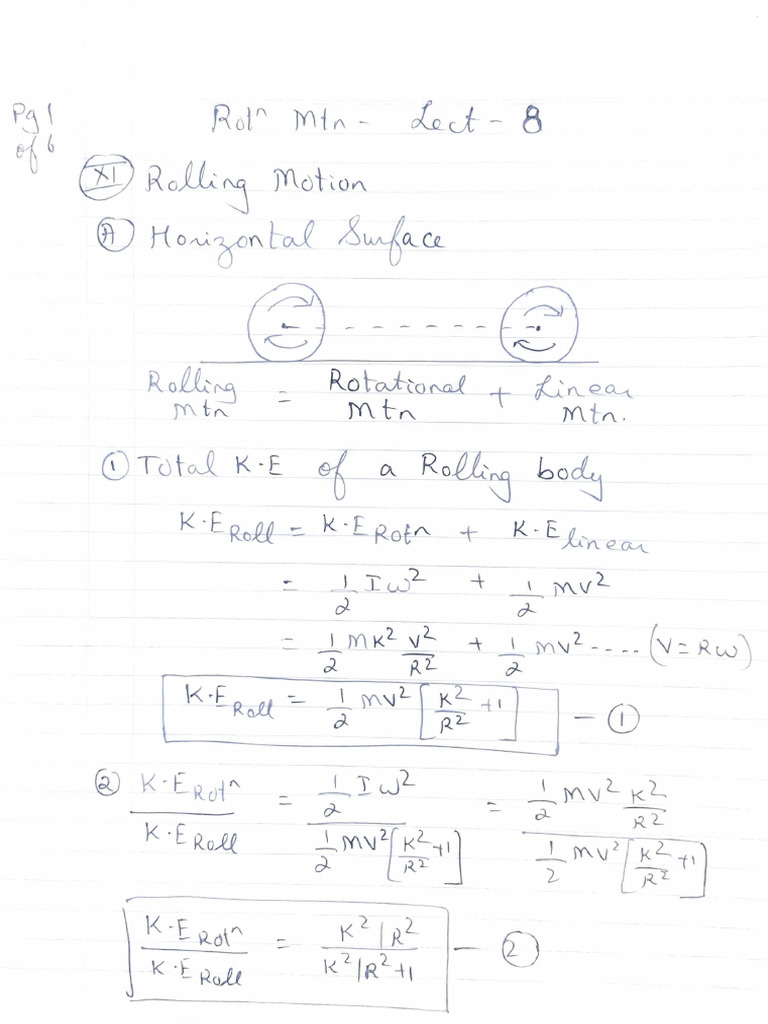 Pg 1
of 6
Rotⁿ Mtn - Lect - 8
XI Rolling Motion
A Horizontal Surface
Rolling Mtn = Rotational Mtn + Linear Mtn.
① Total K.E of a Rolling body
K.E Roll = K.E Rotⁿ + K.E linear
= 1/2 Iω² + 1/2 mv²
= 1/2 MK² V²/R² + 1/2 mv² .... (V = Rω)
K.E Roll = 1/2 mv² [K²/R² + 1] — ①
② K.E Rotⁿ / K.E Roll = 1/2 Iω² / 1/2 mv² [K²/R² + 1] = 1/2 mv² K²/R² / 1/2 mv² [K²/R² + 1]
K.E Rotⁿ / K.E Roll = K²/R² / K²/R² + 1 — ②